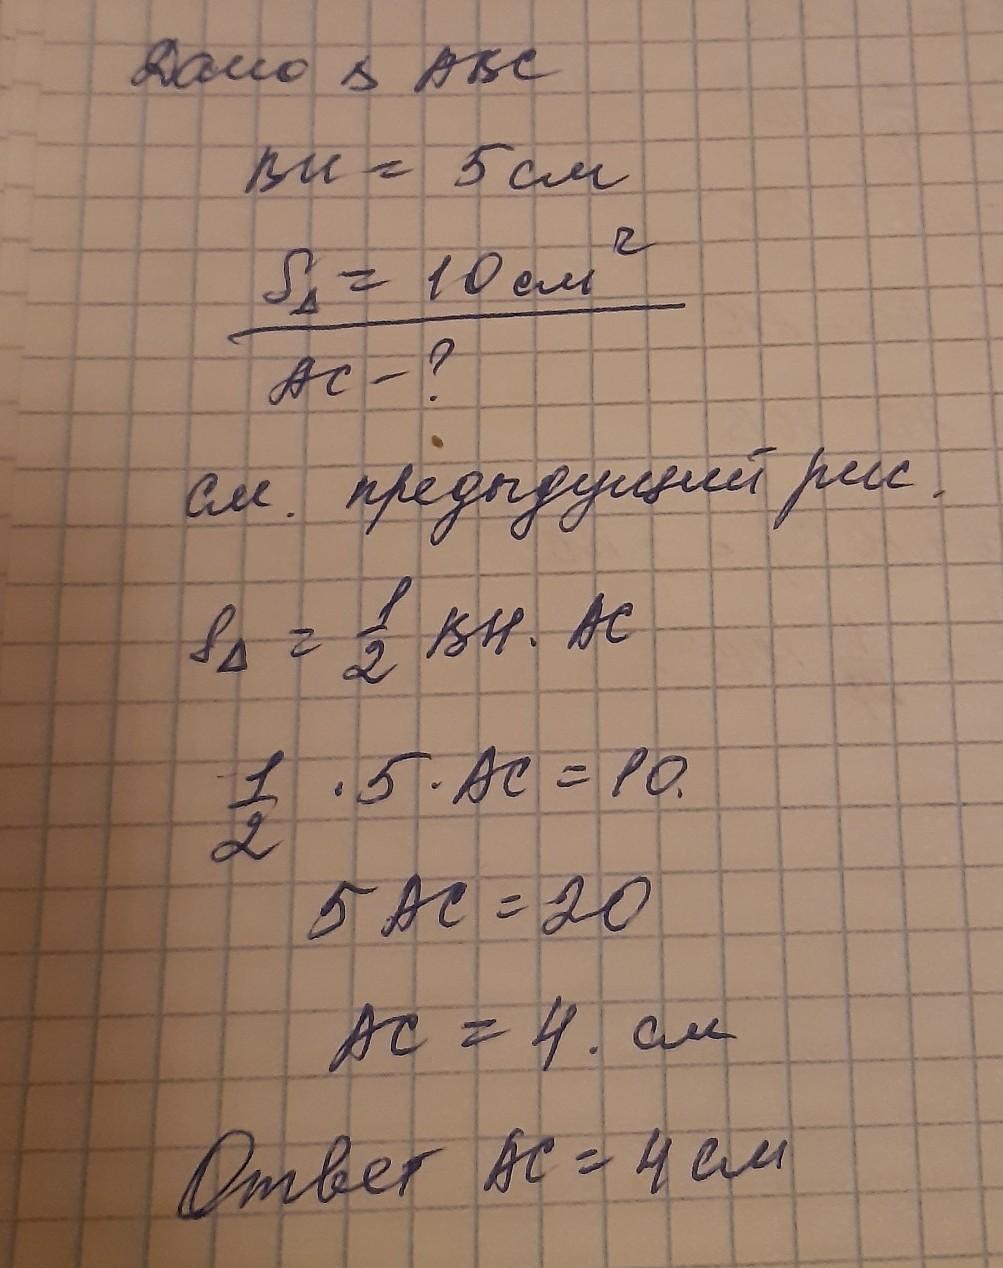 Дано △ ABC
BH = 5 см
S△ = 10 см²
AC – ?
см. предыдущий рис.
S△ = 1/2 BH · AC
1/2 · 5 · AC = 10.
5 AC = 20
AC = 4. см
Ответ AC = 4 см